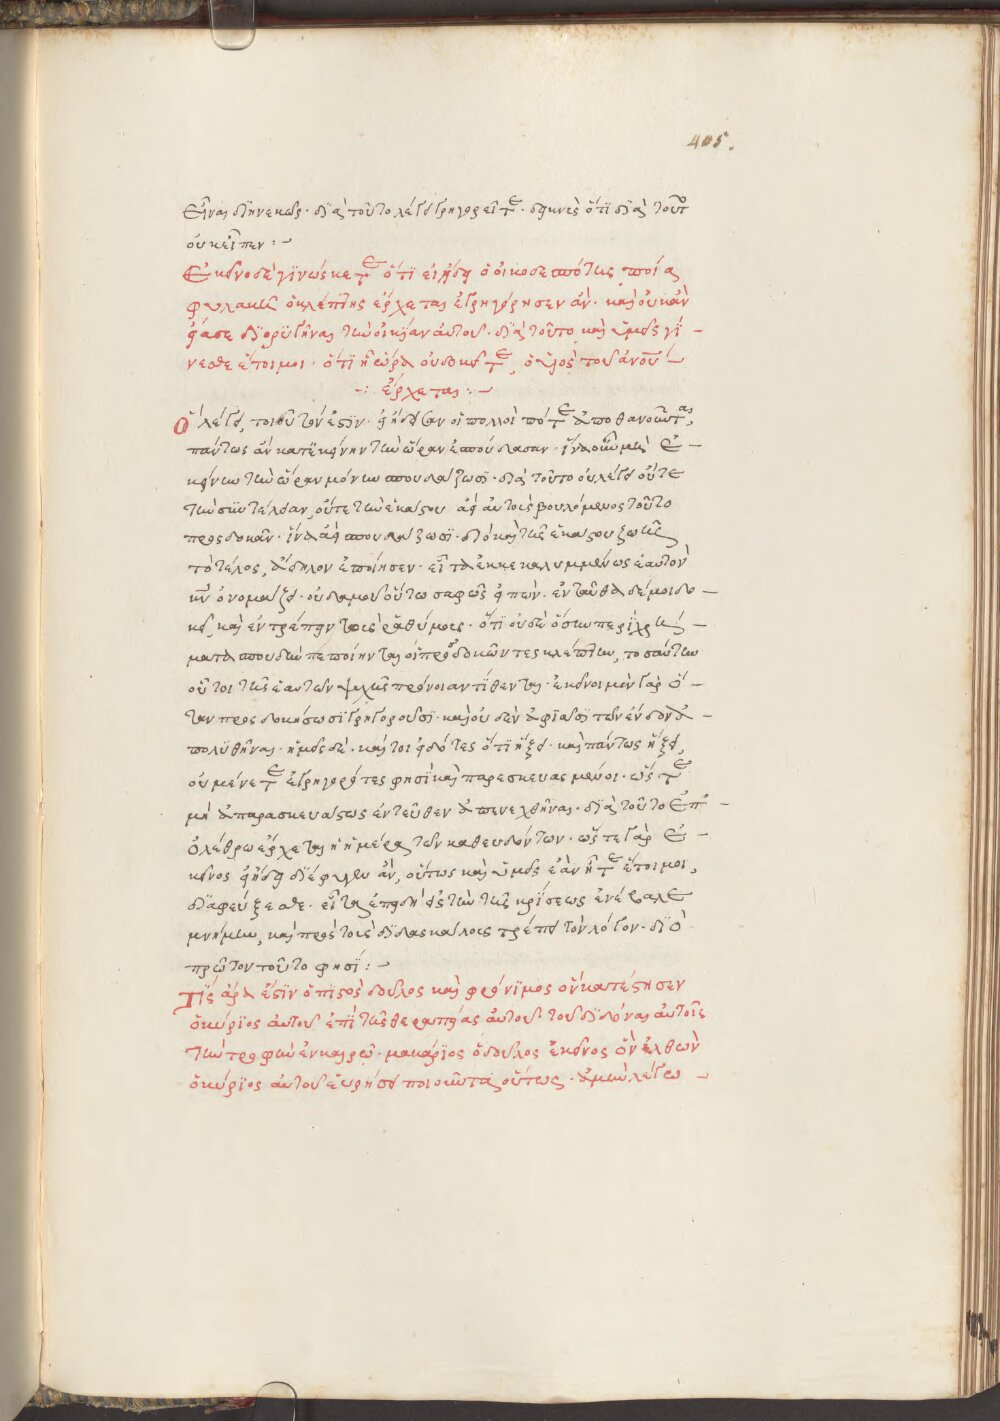 405.
εἶναι διηνεκῶς· διὰ τοῦτο λέγει γρηγορεῖτε· δηκνὺς ὅτι διὰ τοῦτο
οὐκ εἶπεν :~
Ἐκεῖνο δὲ γινώσκετε ὅτι εἰ ᾔδει ὁ οἰκοδεσπότης ποία
φυλακῇ ὁ κλέπτης ἔρχεται ἐγρηγόρησεν ἄν· καὶ οὐκ ἂν
εἴασε διορυγῆναι τὴν οἰκίαν αὐτοῦ· διὰ τοῦτο καὶ ὑμεῖς γί –
νεσθε ἕτοιμοι· ὅτι ἧ ὥρα οὐ δοκεῖτε, ὁ υἱὸς τοῦ ἀνου –
–: ἔρχεται :–
Ὃ λέγει, τοιοῦτόν ἐστιν· εἰ ᾔδεισαν οἱ πολλοὶ πότε ἀποθανοῦνται,
πάντως ἂν κατ' ἐκείνην τὴν ὥραν ἐσπούδασαν· ἵνα οὖν μὴ ἐ –
κείνην τὴν ὥραν μόνην σπουδάζωσι· διὰ τοῦτο οὐ λέγει οὔτε
τὴν συντέλειαν, οὔτε τὴν ἑκάστου ἀεὶ αὐτοὺς βουλόμενος τοῦτο
προσδοκᾶν· ἵνα ἀεὶ σπουδάζωσι· διὸ καὶ τῆς ἑκάστου ζωῆς
τὸ τέλος, ἄδηλον ἐποίησεν· εἶτα ἐκκεκαλυμμένως ἑαυτὸν
κν ὀνομάζει· οὐδαμοῦ οὕτω σαφῶς εἰπών· ἐνταῦθα δέ μοι δο –
κεῖ, καὶ ἐντρέπειν τοὺς ῥαθύμους· ὅτι οὐδὲ ὅσην περὶ χρη –
ματα σπουδὴν πεποίηνται οἱ προσδοκῶντες κλέπτην, τοσαύτην
οὗτοι τῆς ἑαυτῶν ψυχῆς πρόνοιαν τίθενται· ἐκεῖνοι μὲν γὰρ ὅ –
ταν προσδοκήσωσι γρηγοροῦσι· καὶ οὐδὲν ἀφιᾶσι τῶν ἔνδον ἀ –
πολυθῆναι· ἡμεῖς δὲ· καίτοι εἰδότες ὅτι ἥξει· καὶ πάντως ἥξει,
οὐ μένετε ἐγρηγορότες φησὶ καὶ παρεσκευασμένοι· ὥστε
μὴ ἀπαρασκευάστως ἐντεῦθεν ἀπενεχθῆναι· διὰ τοῦτο ἐπ' –
ὀλέθρω ἔρχεται ἡ ἡμέρα τῶν καθευδόντων· ὥστε γὰρ ἐ –
κεῖνος εἰ ᾔδει διέφυγεν ἄν, οὕτως καὶ ὑμεῖς ἐὰν ἦτε ἕτοιμοι,
διαφεύξεσθε· εἶτα ἐπειδὴ εἰς τὴν τῆς κρίσεως ἐνέβαλε
μνήμην, καὶ πρὸς τοὺς διδασκάλους τρέπει τὸν λόγον· διὸ
πρῶτον τοῦτο φησί :~
Τίς ἄρα ἐστὶν ὁ πιστὸς δοῦλος καὶ φρόνιμος ὃν κατέστησεν
ὁ κύριος αὐτοῦ ἐπὶ τῆς θεραπείας αὐτοῦ· τοῦ διδόναι αὐτοῖς
τὴν τροφὴν ἐν καιρῷ· μακάριος ὁ δοῦλος ἐκεῖνος ὃν ἐλθὼν
ὁ κύριος αὐτοῦ εὑρήσει ποιοῦντα οὕτως· ἀμὴν λέγω –